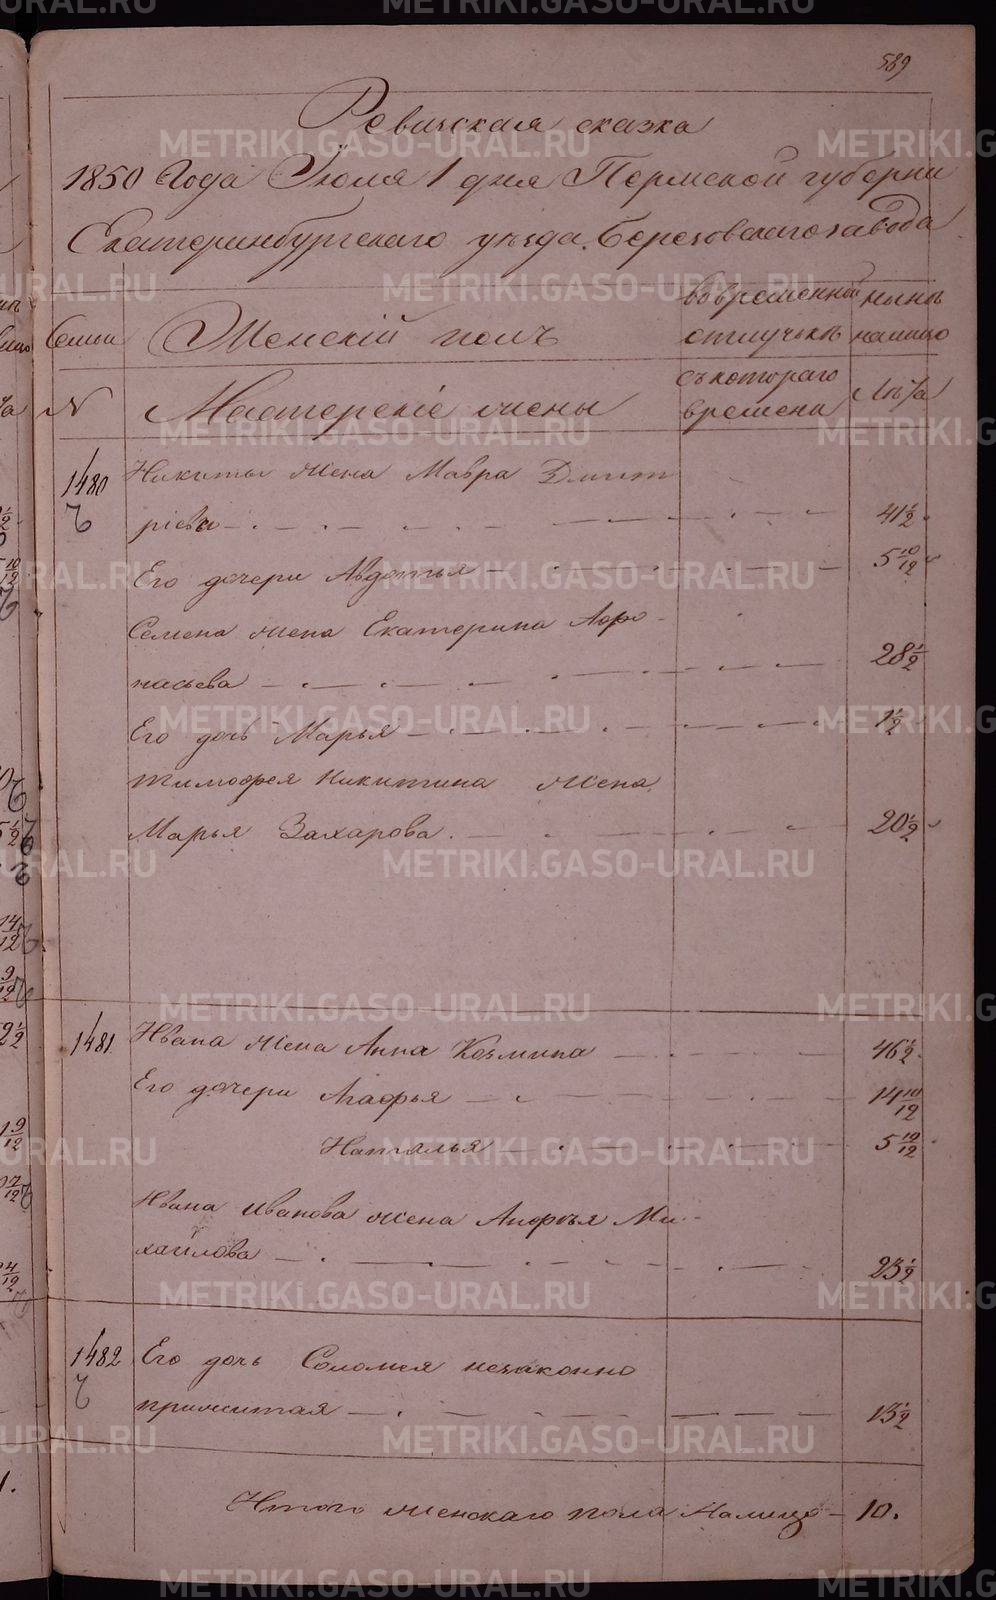 589
Ревизская сказка
1850 Года Іюля 1 дня Пермской губерни
Екатеринбургскаго уѣзда, Березовскаго завода
Семьи Женскій полъ во временной отлучкѣ нынѣ налицо
№ Мастерскіе жены съ котораго времени Лѣта
1480 Никиты жена Мавра Дмит
ріева 41 1/2
Его дочери Авдотья 5 10/12
Семена жена Екатерина Афо-
насьева 28 1/2
Его дочь Марья 1 1/2
Тимофея Никитина жена
Марья Захарова 20 1/2
1481 Ивана жена Анна Козмина 46 1/2
Его дочери Агафья 14 10/12
Наталья 5 10/12
Ивана Иванова жена Анфія Ми-
хайлова 23 1/2
1482 Его дочь Соломея незаконно
прижитая 13 1/2
Итого женскаго пола Налицо 10.
METRIKI.GASO-URAL.RU